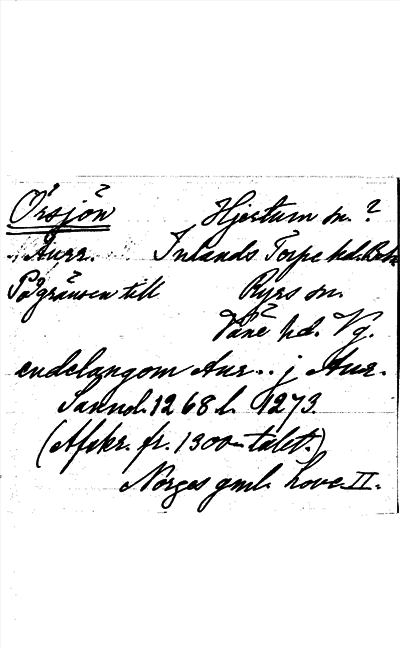 Örsjön Hjertum sn. ?
Aurr. Inlands Torpe hd. Boh
På gränsen till Ryrs sn.
Väne hd. Vg.
endelangom Aur.. j Aur.
Sannol. 1268 l. 1273.
(Afskr. fr. 1300-talet.)
Norges gml. Love II.